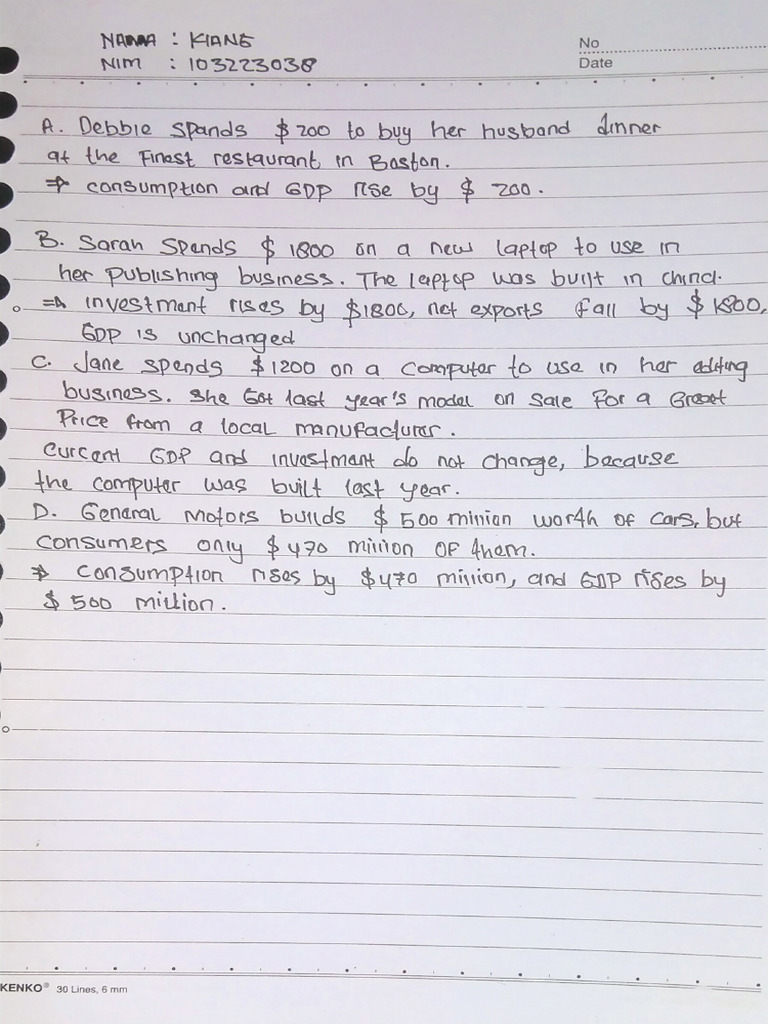 NAMA : KIANE
NIM : 103223038
No
Date
A. Debbie spands $200 to buy her husband dinner
at the Finest restaurant in Boston.
⇒ consumption and GDP rise by $ 200.
B. Sarah Spends $ 1800 on a new laptop to use in
her publishing business. The laptop was built in china.
⇒ investment rises by $1800, net exports fall by $ 1800,
GDP is unchanged
C. Jane spends $1200 on a computer to use in her editing
business. she Got last year's model on sale for a Great
Price from a local manufacturer.
Current GDP and investment do not change, because
the computer was built last year.
D. General Motors builds $ 500 million worth of cars, but
consumers only $470 million OF them.
⇒ consumption rises by $470 million, and GDP rises by
$ 500 million.
KENKO® 30 Lines, 6 mm